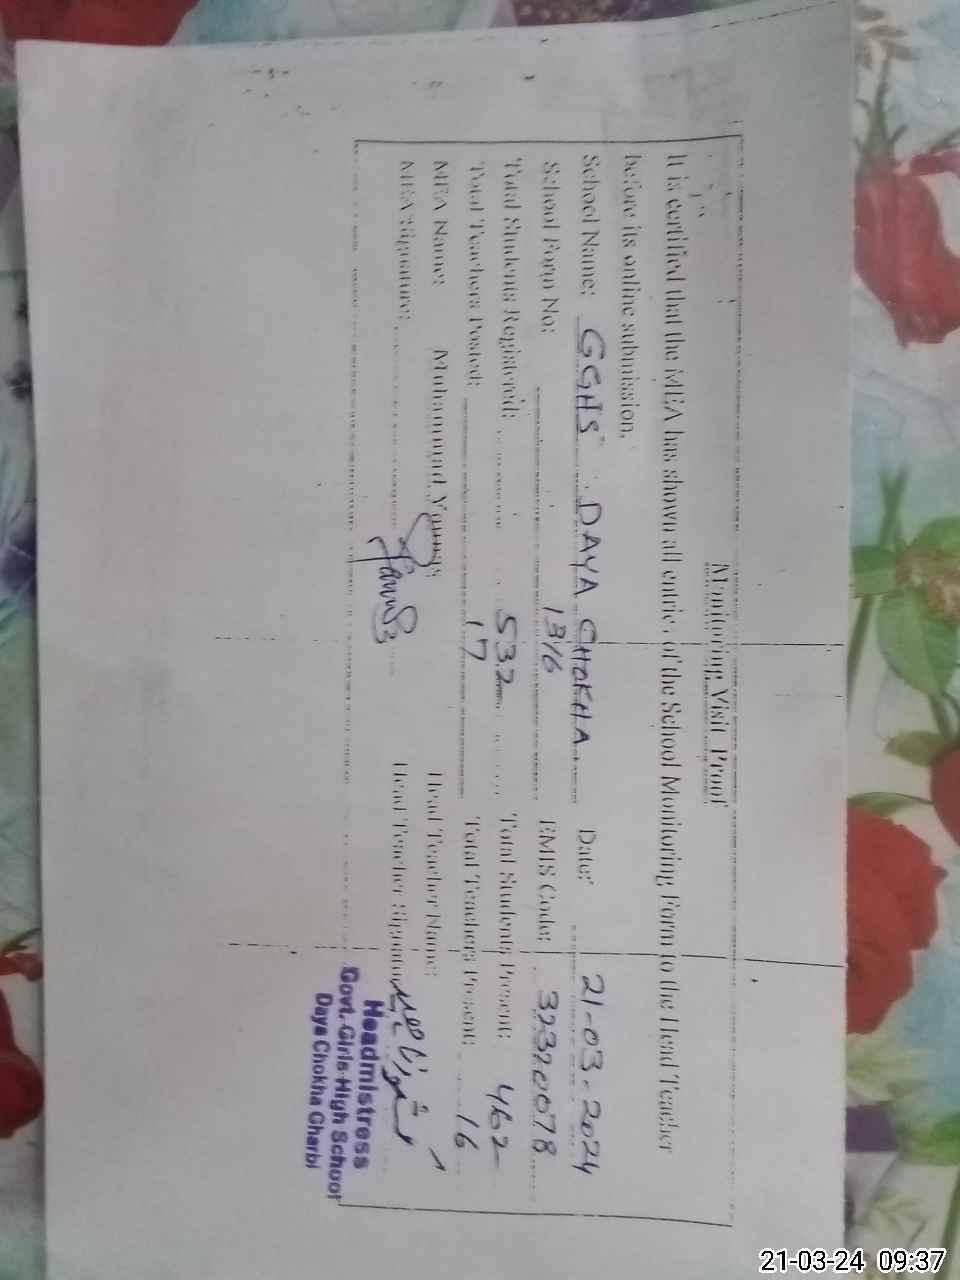 Monitoring Visit Proof
It is certified that the MEA has shown all entries of the School Monitoring Form to the Head Teacher
before its online submission.
School Name: GGHS DAYA CHOKHA Date: 21-03-2024
School Form No: 1316 EMIS Code: 32320078
Total Students Registered: 532 Total Students Present: 462
Total Teachers Posted: 17 Total Teachers Present: 16
MEA Name: Muhammad Younus Head Teacher Name:
MEA Signature: Head Teacher Signature
Headmistress
Govt. Girls High School
Daya Chokha Gharbi
21-03-24 09:37